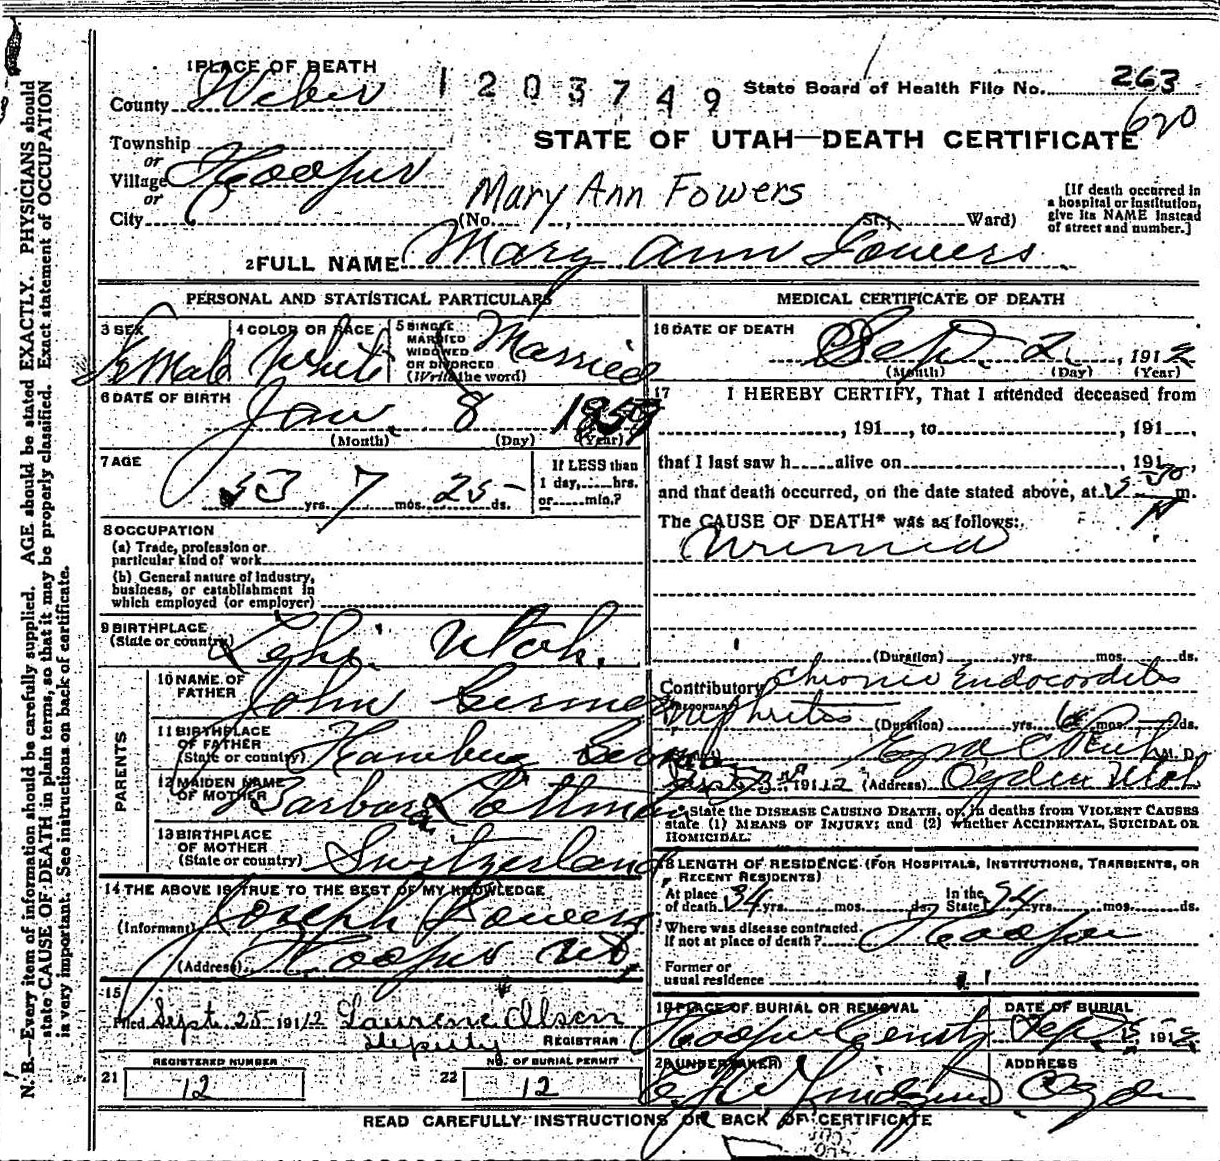 1 PLACE OF DEATH
County Weber
1203749
State Board of Health File No. 263
620
STATE OF UTAH—DEATH CERTIFICATE
Township
or
Village Hooper
or
City
Mary Ann Fowers
(No. , St.; Ward)
[If death occurred in a hospital or institution, give its NAME instead of street and number.]
2 FULL NAME Mary Ann Fowers
PERSONAL AND STATISTICAL PARTICULARS
3 SEX Female
4 COLOR OR RACE White
5 SINGLE MARRIED WIDOWED OR DIVORCED (Write the word) Married
6 DATE OF BIRTH Jan. 8 1859
(Month) (Day) (Year)
7 AGE 53 yrs. 7 mos. 25 ds.
If LESS than 1 day, hrs. or min.?
8 OCCUPATION
(a) Trade, profession or particular kind of work
(b) General nature of industry, business, or establishment in which employed (or employer)
9 BIRTHPLACE
(State or country) Lehi Utah.
PARENTS
10 NAME OF FATHER John
11 BIRTHPLACE OF FATHER
(State or country) Hamburg
12 MAIDEN NAME OF MOTHER Barbara
13 BIRTHPLACE OF MOTHER
(State or country) Switzerland
14 THE ABOVE IS TRUE TO THE BEST OF MY KNOWLEDGE
(Informant) Joseph Fowers
(Address) Hooper Ut.
15
Filed Sept. 25 1912 Laurene Olsen
deputy REGISTRAR
REGISTERED NUMBER
21 12
NO. OF BURIAL PERMIT
22 12
MEDICAL CERTIFICATE OF DEATH
16 DATE OF DEATH
Sept. 2, 1912
(Month) (Day) (Year)
17 I HEREBY CERTIFY, That I attended deceased from
, 191 , to , 191 ,
that I last saw h alive on , 191
and that death occurred, on the date stated above, at 30 m.
The CAUSE OF DEATH* was as follows:
Uremia
(Duration) yrs. mos. ds.
Contributory Chronic Endocordites
(SECONDARY) Nephrites (Duration) yrs. 6 mos. ds.
(Signed) Ezra C Rich M.D.
Sept 3rd 1912 (Address) Ogden Utah
* State the DISEASE CAUSING DEATH, or, in deaths from VIOLENT CAUSES state (1) MEANS OF INJURY; and (2) whether ACCIDENTAL, SUICIDAL OR HOMICIDAL.
18 LENGTH OF RESIDENCE (FOR HOSPITALS, INSTITUTIONS, TRANSIENTS, OR RECENT RESIDENTS)
At place of death 34 yrs. mos. ds. In the State yrs. mos. ds.
Where was disease contracted If not at place of death? Hooper
Former or usual residence
19 PLACE OF BURIAL OR REMOVAL
Hooper
DATE OF BURIAL
Sept. 5 1912
20 UNDERTAKER
ADDRESS
Ogden
READ CAREFULLY INSTRUCTIONS ON BACK OF CERTIFICATE
N. B.—Every item of information should be carefully supplied. AGE should be stated EXACTLY. PHYSICIANS should
state CAUSE OF DEATH in plain terms, so that it may be properly classified. Exact statement of OCCUPATION
is very important. See instructions on back of certificate.